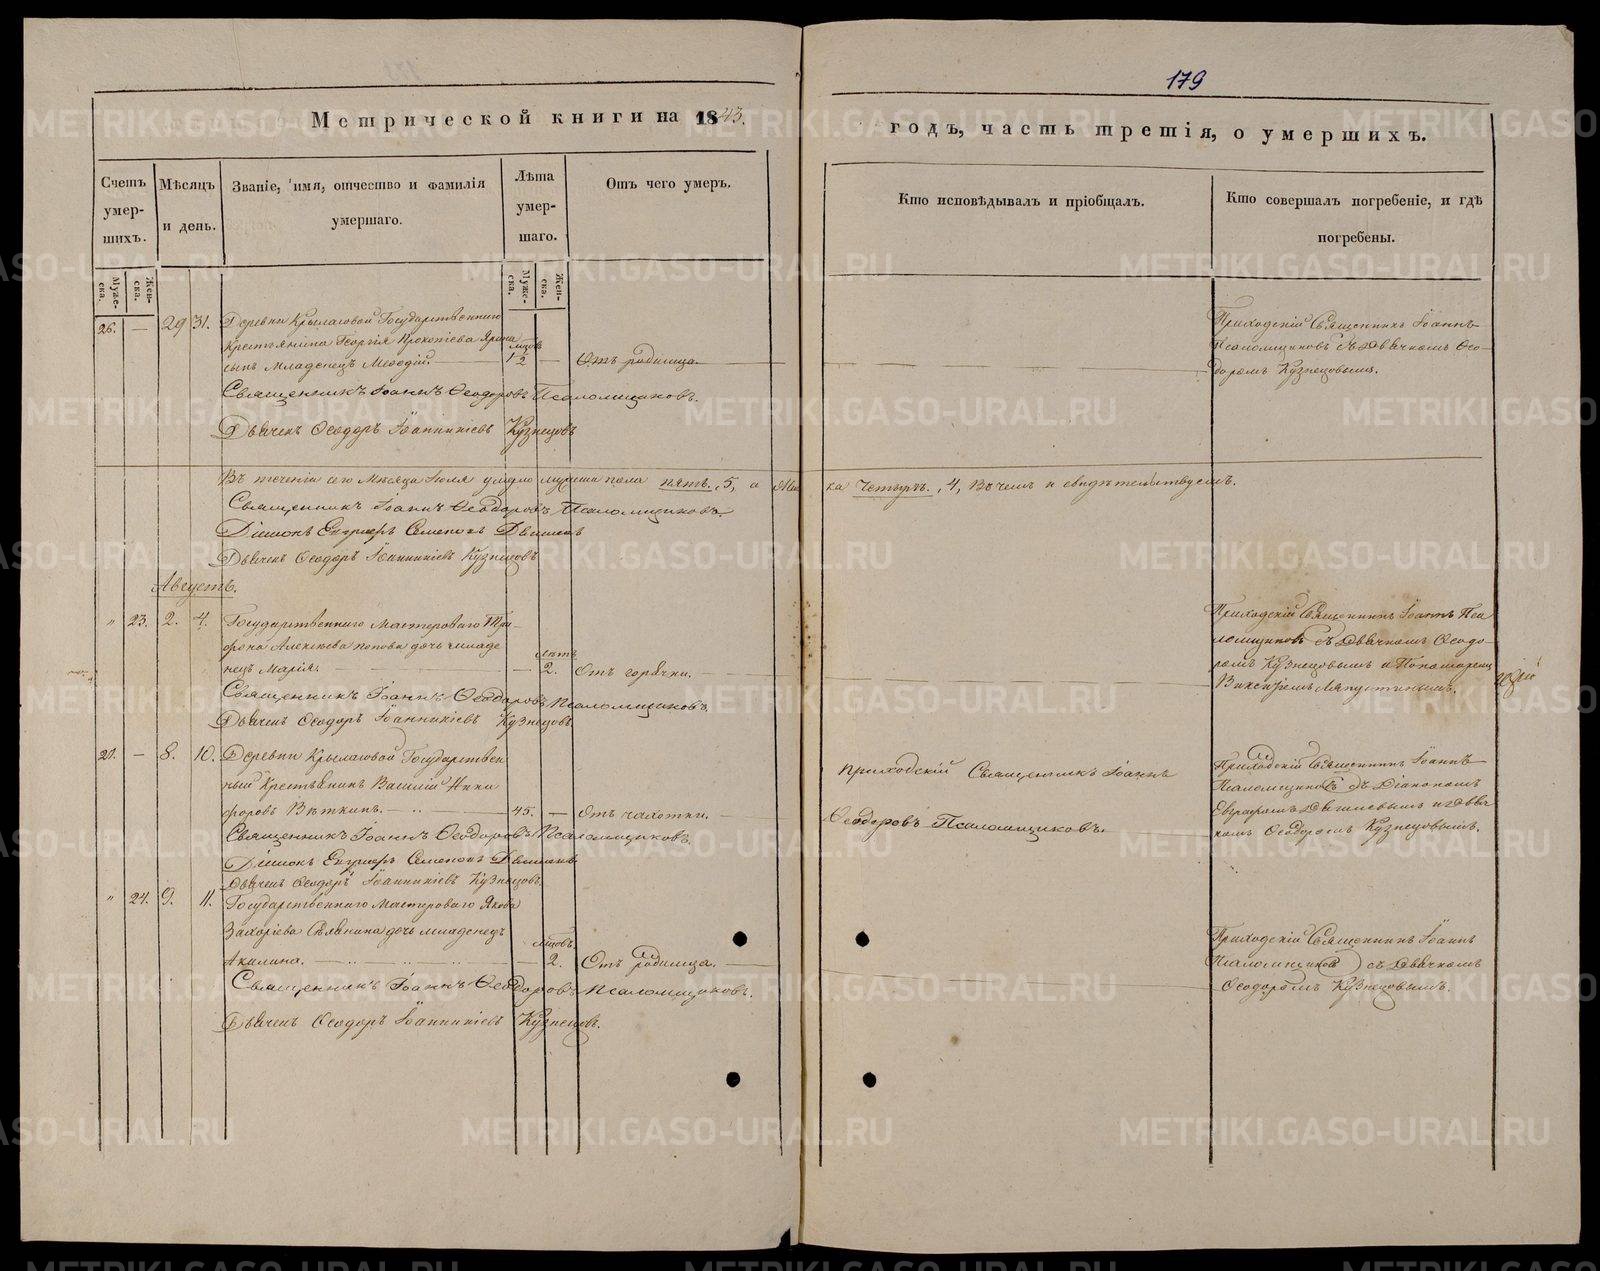 179
Метрической книги на 1843.
годъ, часть третія, о умершихъ.
Счетъ умер-шихъ.
Мѣсяцъ и день.
Званіе, имя, отчество и фамилія умершаго.
Лѣта умер-шаго.
Отъ чего умеръ.
Кто исповѣдывалъ и пріобщалъ.
Кто совершалъ погребеніе, и гдѣ погребены.
Муже-ска.
Жен-ска.
Муже-ска.
Жен-ска.
26. — 29 31. Деревни Крыласовой Государственнаго
крестьянина Георгія Прокопіева
сынъ младенецъ Меѳодій. 1/2 — Отъ родимца.
Приходскій Священникъ Іоаннъ
Псаломщиковъ съ Дьячкомъ Ѳео-
доромъ Кузнецовымъ.
Священникъ Іоаннъ Ѳеодоровъ Псаломщиковъ.
Дьячекъ Ѳеодоръ Іоанникіевъ Кузнецовъ
Въ теченіи сего мѣсяца Іюля умерло мужеска пола пять, 5, а жен ска четыре, 4, въ чемъ и свидѣтельствуемъ.
Священникъ Іоаннъ Ѳеодоровъ Псаломщиковъ.
Діаконъ Семеновъ
Дьячекъ Ѳеодоръ Іоанникіевъ Кузнецовъ
Августъ.
" 23. 2. 4. Государственнаго мастероваго Три-
фона Алексѣева Попова дочь младе
нецъ Марія. — лѣтъ 2. Отъ горячки.
Приходскій Священникъ Іоаннъ Пса
ломщиковъ съ Дьячкомъ Ѳеодо-
ромъ Кузнецовымъ и Пономаремъ
Священникъ Іоаннъ Ѳеодоровъ Псаломщиковъ.
Дьячекъ Ѳеодоръ Іоанникіевъ Кузнецовъ
27. — 8. 10. Деревни Крыласовой Государствен
ный Крестьянинъ Василій Ники
форовъ Вяткинъ. — 45. — Отъ чахотки.
Приходскій Священникъ Іоаннъ
Ѳеодоровъ Псаломщиковъ.
Приходскій Священникъ Іоаннъ
Псаломщиковъ съ Діакономъ
Евграфомъ и Дьяч
комъ Ѳеодоромъ Кузнецовымъ.
Священникъ Іоаннъ Ѳеодоровъ Псаломщиковъ.
Діаконъ Семеновъ
Дьячекъ Ѳеодоръ Іоанникіевъ Кузнецовъ.
" 24. 9. 11. Государственнаго мастероваго Якова
Захаріева дочь младенецъ
Акилина. — мѣсцовъ 2. Отъ родимца.
Приходскій Священникъ Іоаннъ
Псаломщиковъ съ Дьячкомъ
Ѳеодоромъ Кузнецовымъ.
Священникъ Іоаннъ Ѳеодоровъ Псаломщиковъ.
Дьячекъ Ѳеодоръ Іоанникіевъ Кузнецовъ.
METRIKI.GASO-URAL.RU